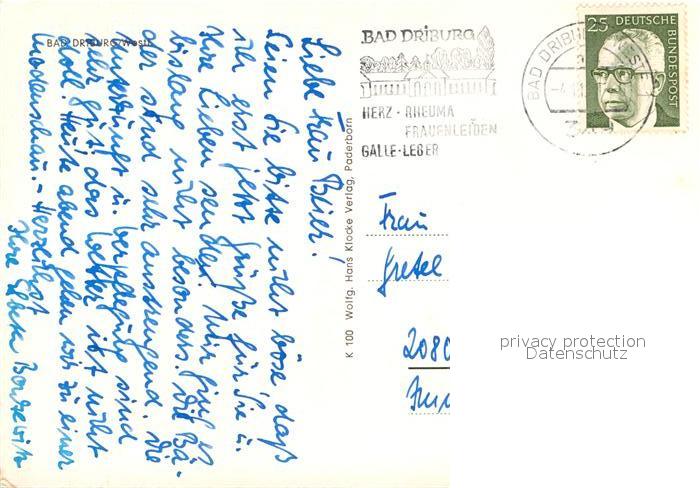 BAD DRIBURG/Westf.
Liebe Frau Beier!
Seien Sie bitte nicht böse, daß
ich erst jetzt Grüße für Sie u.
Ihre Lieben sende. Mir ging es
bislang nicht besonders. Die Bä-
der sind sehr anstrengend. Die
Unterkunft u. Verpflegung sind
sehr gut, das Wetter ist nicht
doll. Heute abend gehen wir zu einer
Modenschau. - Herzlichst
Ihre
K 100 Wolfg. Hans Klocke Verlag, Paderborn
BAD DRIBURG
HERZ · RHEUMA
FRAUENLEIDEN
GALLE · LEBER
BAD DRIBURG
25 DEUTSCHE
BUNDESPOST
Frau
Gretel
2080
privacy protection
Datenschutz